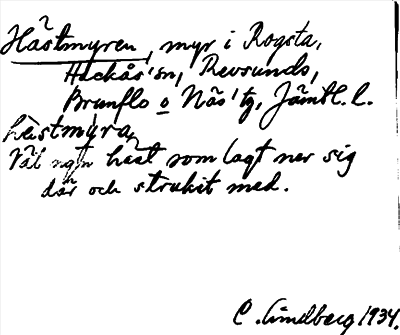 Hästmyren, myr i Rogsta,
Hackås' sn, Revsunds,
Brunflo o Näs' tg, Jämtl. l.
hästmyra
Väl ngn häst som lagt ner sig
där och strukit med.
C. Lindberg 1934.